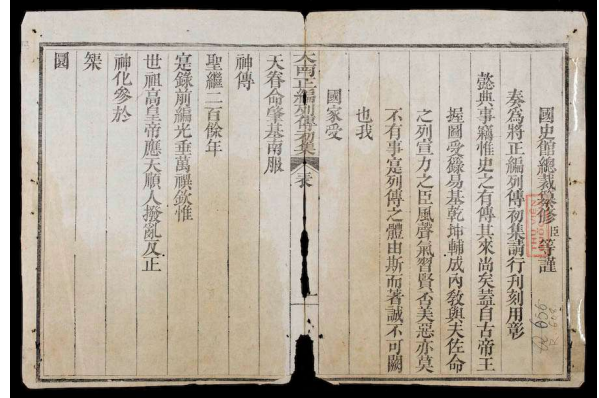 國史館總裁纂修臣等謹
奏為將正編列傳初集請行刊刻用彰
懿典事竊惟史之有傳其來尚矣蓋自古帝王
握圖受籙易基乾坤輔成內教與夫佐命
之列宣力之臣風聲氣習賢否美惡亦莫
不有事寔列傳之體由斯而著誠不可闕
也我
國家受
大南正編列傳初集
表
天眷命肇基南服
神傳
聖繼二百餘年
寔錄前編光垂萬禩欽惟
世祖高皇帝應天順人撥亂反正
神化參於
榘